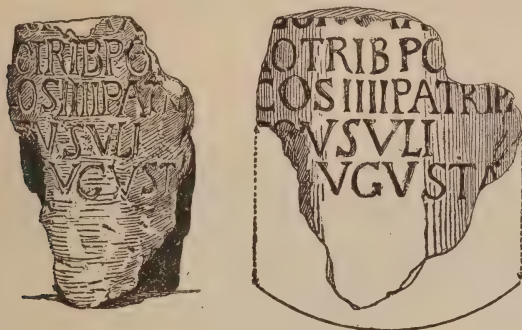 OTRIBPO
OSIIIIPATR
TVSVLI
VGVST
OTRIBPO
COSIIIIPATRIB
VSVLI
VGVSTA